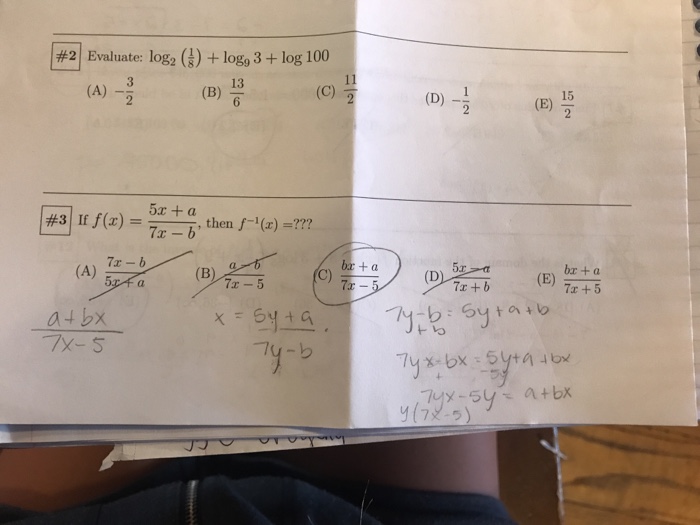 #2 Evaluate: log₂ (1/8) + log₉ 3 + log 100
(A) −3/2 (B) 13/6 (C) 11/2 (D) −1/2 (E) 15/2
#3 If f(x) = (5x + a)/(7x − b), then f⁻¹(x) =???
(A) (7x − b)/(5x + a) (B) (a − b)/(7x − 5) (C) (bx + a)/(7x − 5) (D) (5x − a)/(7x + b) (E) (bx + a)/(7x + 5)
(a+bx)/(7x-5)
x = (5y+a)/(7y-b)
7y-b = 5y+a+b
+b
7yx-bx = 5y+a+bx
+ -5y
7yx-5y = a+bx
y(7x-5)